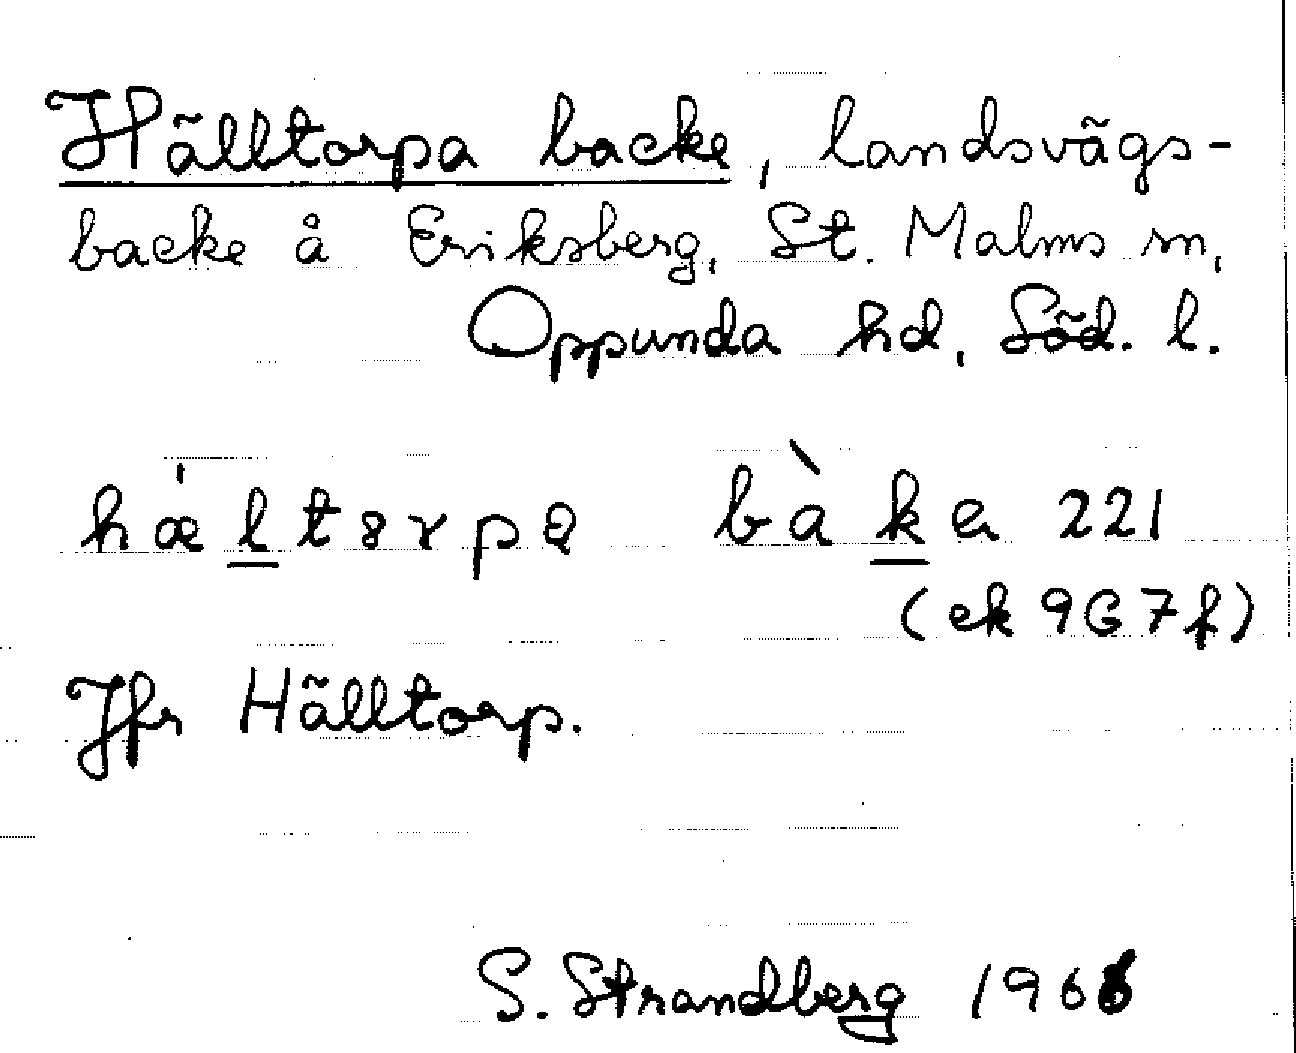 Hälltorpa backe, landsvägs-
backe å Eriksberg, St. Malms sn,
Oppunda hd, Söd. l.
hæ̀ltɜrpa bàkɐ 221
(ek 9G7f)
Jfr Hälltorp.
S. Strandberg 1966